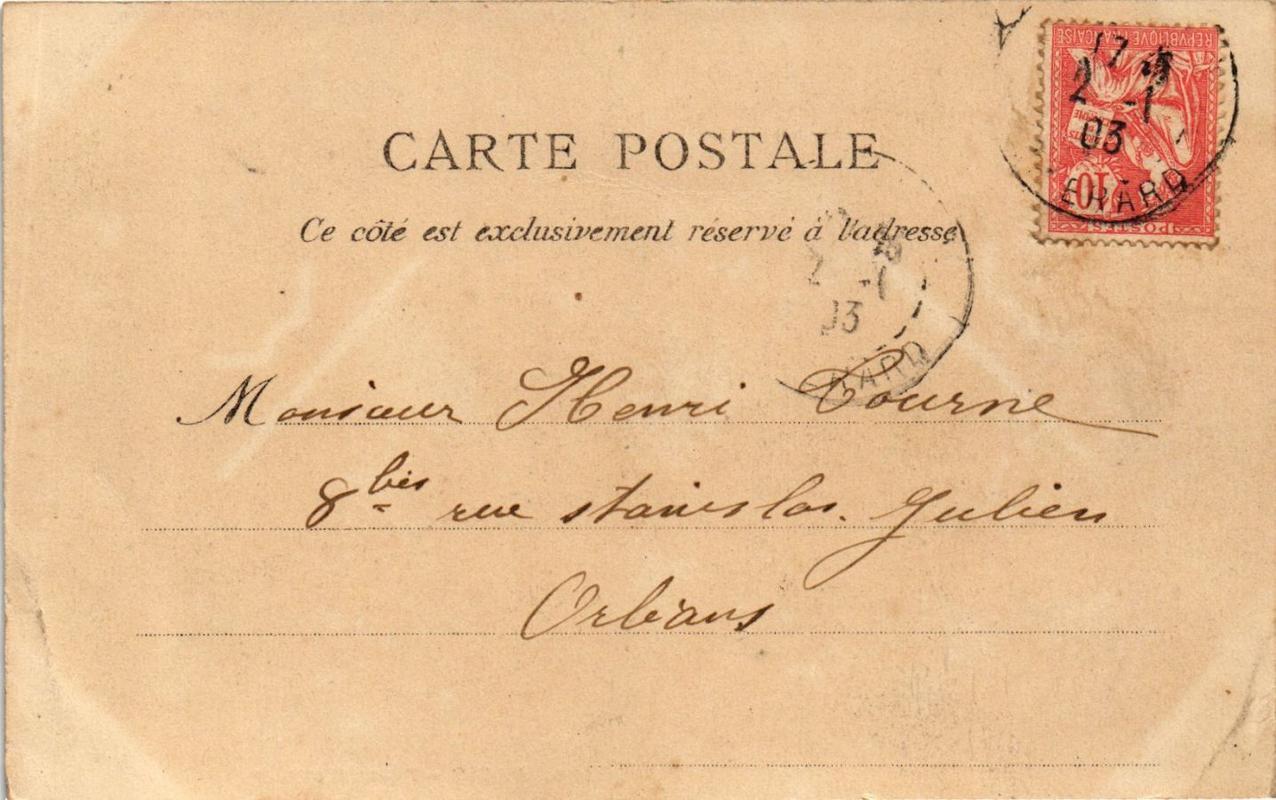 REPVBLIQVE FRANÇAISE
10
POSTES
17
2 -1
03
ERARD
CARTE POSTALE
Ce côté est exclusivement réservé à l'adresse
2 -1
03
RARD
Monsieur Henri Tourne
8 bis rue stanislas. Julien
Orléans